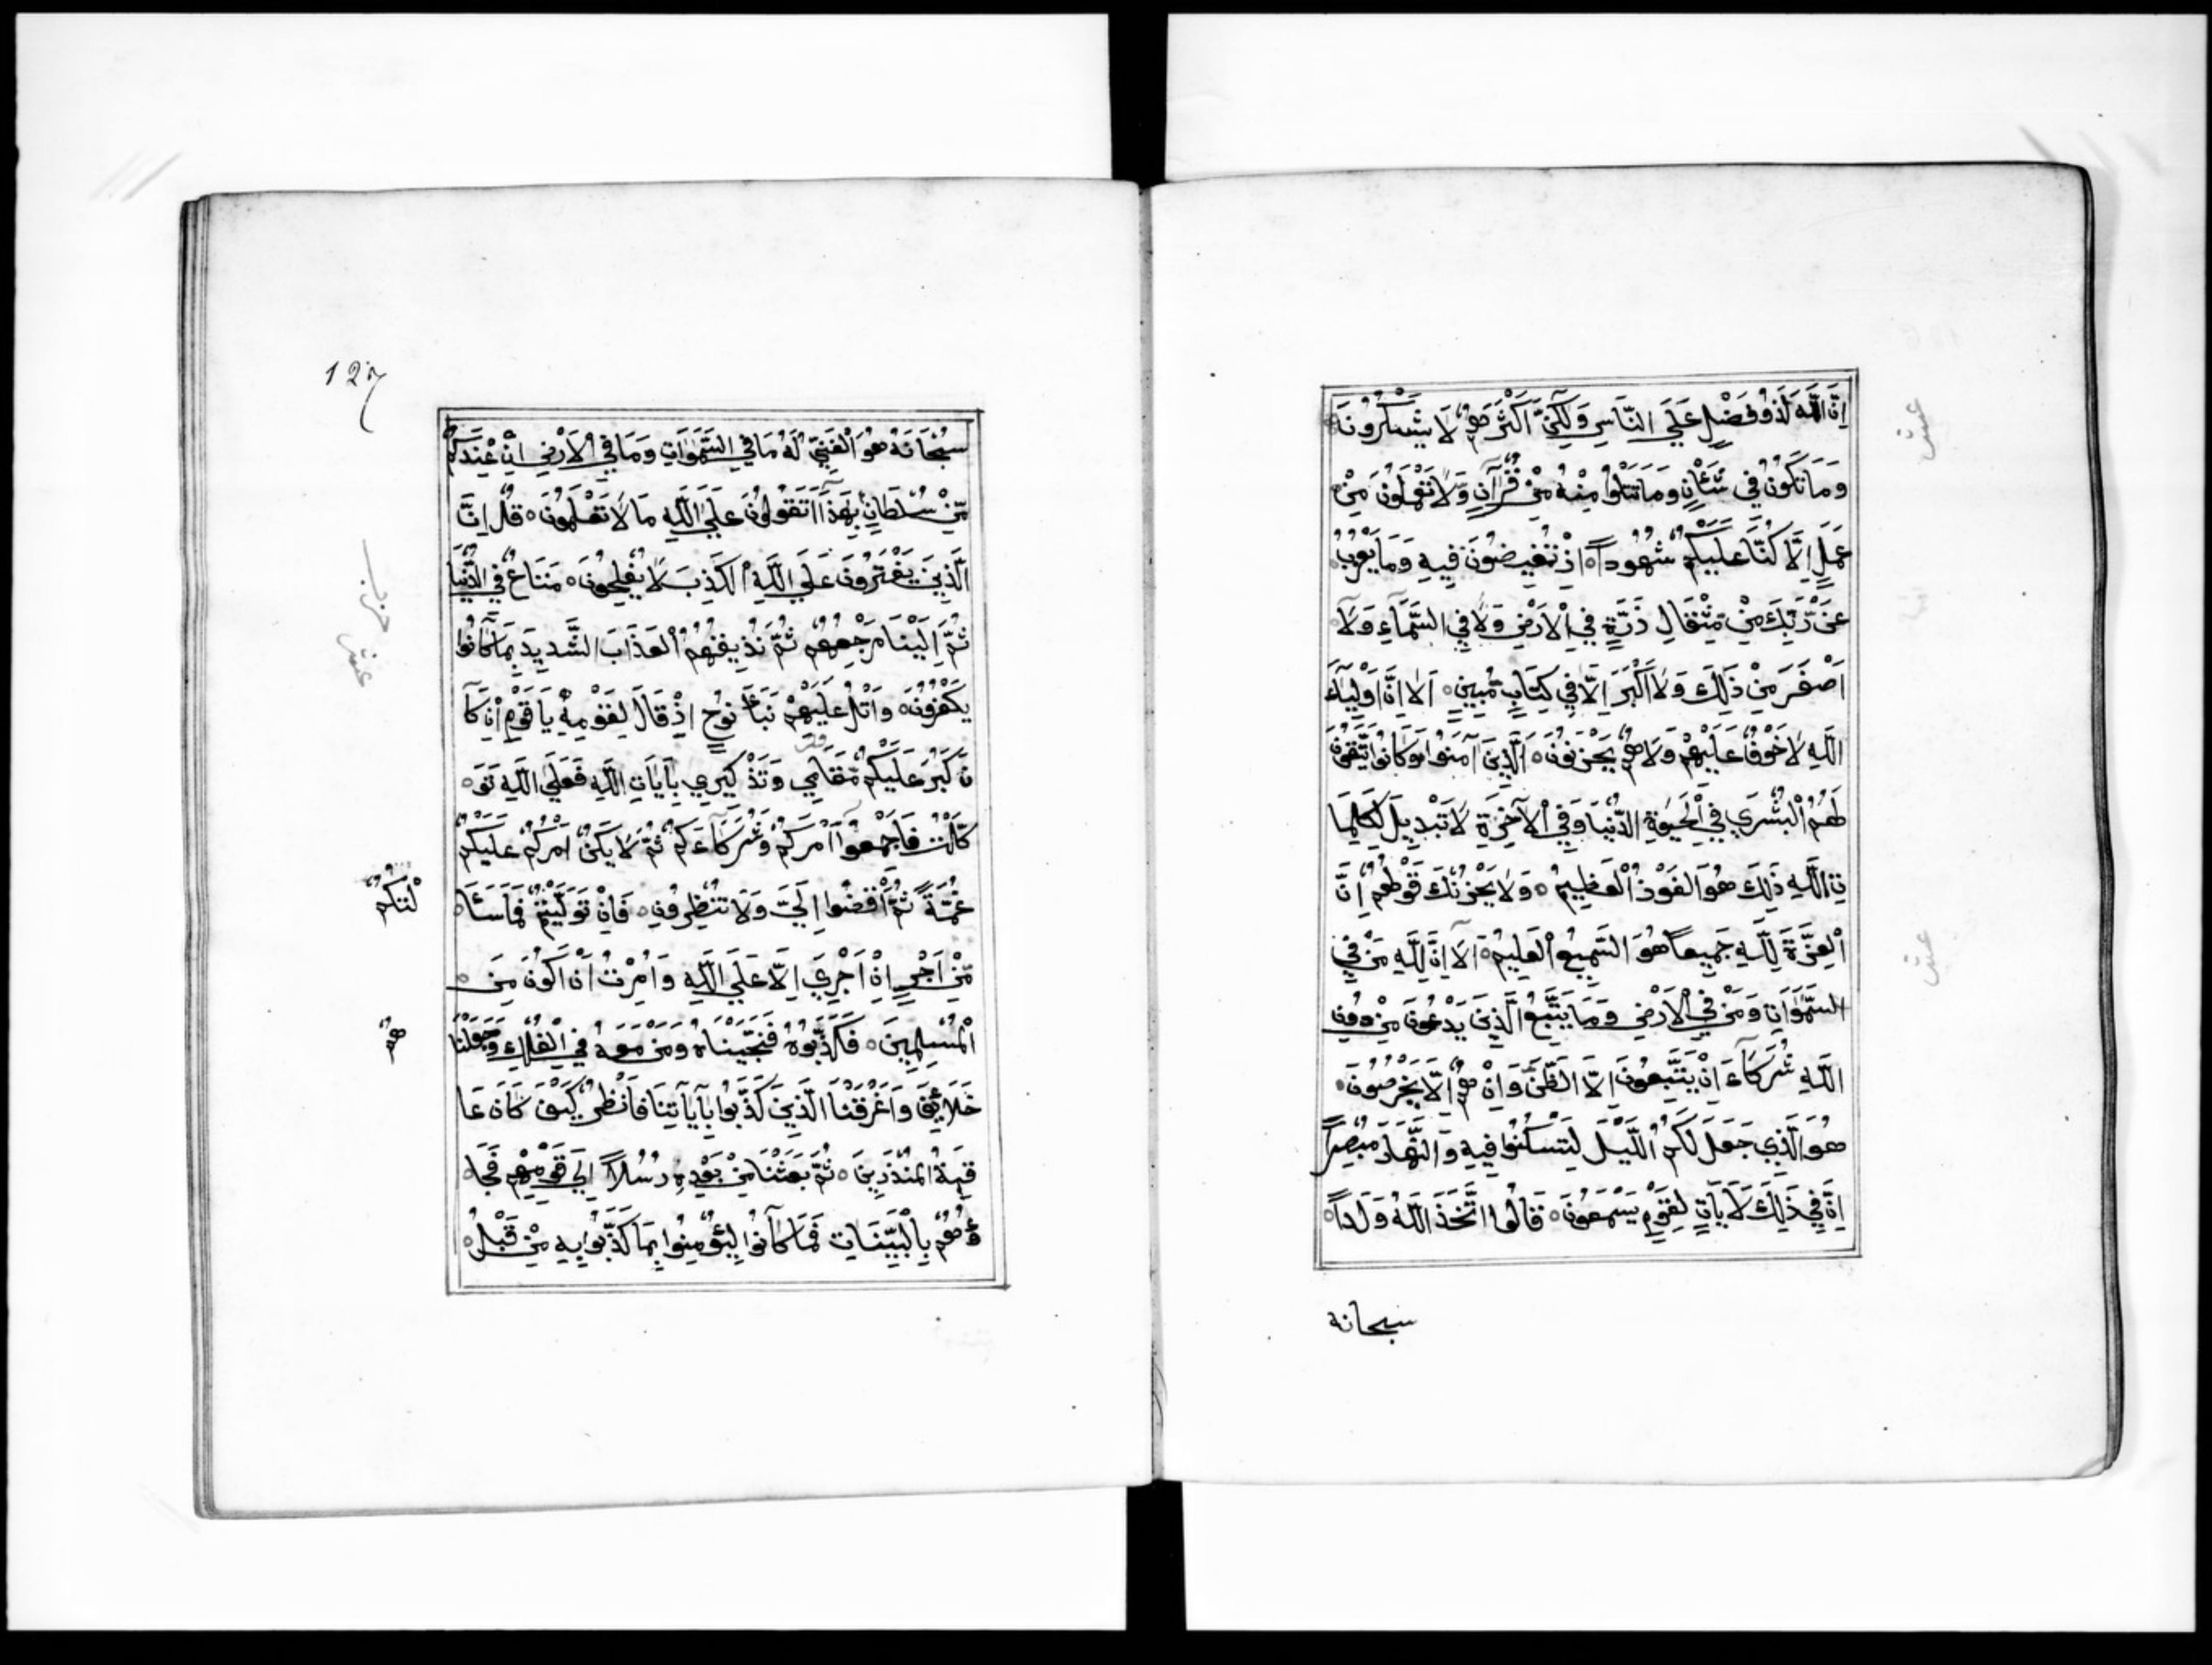 اِنَّ اللَّهَ لَذُو فَضْلٍ عَلَى النَّاسِ وَلٰكِنَّ اَكْثَرَهُمْ لَا يَشْكُرُونَ
وَمَا تَكُونُ فِي شَأْنٍ وَمَا تَتْلُوا مِنْهُ مِنْ قُرْآنٍ وَلَا تَعْمَلُونَ مِنْ
عَمَلٍ اِلَّا كُنَّا عَلَيْكُمْ شُهُوداً اِذْ تُفِيضُونَ فِيهِ وَمَا يَعْزُبُ
عَنْ رَّبِّكَ مِنْ مِثْقَالِ ذَرَّةٍ فِي الْاَرْضِ وَلَا فِي السَّمَآءِ وَلَا
اَصْغَرَ مِنْ ذَلِكَ وَلَا اَكْبَرَ اِلَّا فِي كِتَابٍ مُّبِينٍ اَلَا اِنَّ اَوْلِيَآءَ
اللَّهِ لَا خَوْفٌ عَلَيْهِمْ وَلَا هُمْ يَحْزَنُونَ اَلَّذِينَ آمَنُوا وَكَانُوا يَتَّقُونَ
لَهُمُ الْبُشْرَي فِي الْحَيٰوةِ الدُّنْيَا وَفِي الْآخِرَةِ لَا تَبْدِيلَ لِكَلِمَا
تِ اللَّهِ ذَلِكَ هُوَ الفَوْزُ الْعَظِيمُ وَلَا يَحْزُنْكَ قَوْلُهُمْ اِنَّ
الْعِزَّةَ لِلَّهِ جَمِيعاً هُوَ السَّمِيعُ الْعَلِيمُ اَلَا اِنَّ لِلَّهِ مَنْ فِي
السَّمٰوَاتِ وَمَنْ فِي الْاَرْضِ وَمَا يَتَّبِعُ الَّذِينَ يَدْعُونَ مِنْ دُونِ
اللَّهِ شُرَكَآءَ اِنْ يَتَّبِعُونَ اِلَّا الظَّنَّ وَاِنْ هُمْ اِلَّا يَخْرُصُونَ
هُوَ الَّذِي جَعَلَ لَكُمُ اللَّيْلَ لِتَسْكُنُوا فِيهِ وَالنَّهَارَ مُبْصِراً
اِنَّ فِي ذَلِكَ لَآيَاتٍ لِقَوْمٍ يَسْمَعُونَ قَالُوا اتَّخَذَ اللَّهُ وَلَداً
سبحانه
عشر
عشر
127
سُبْحَانَهُ هُوَ الْغَنِيُّ لَهُ مَا فِي السَّمٰوَاتِ وَمَا فِي الْاَرْضِ اِنْ عِنْدَكُمْ
مِّنْ سُلْطَانٍ بِهَذَا اَتَقُولُونَ عَلَى اللَّهِ مَا لَا تَعْلَمُونَ قُلْ اِنَّ
الَّذِينَ يَفْتَرُونَ عَلَي اللَّهِ الكَذِبَ لَا يُفْلِحُونَ مَتَاعٌ فِي الدُّنْيَا
ثُمَّ اِلَيْنَا مَرْجِعُهُمْ ثُمَّ نُذِيقُهُمُ الْعَذَابَ الشَّدِيدَ بِمَا كَانُوا
يَكْفُرُونَ وَاتْلُ عَلَيْهِمْ نَبَأَ نُوحٍ اِذْ قَالَ لِقَوْمِهِ يَا قَوْمِ اِنْ كَا
نَ كَبُرَ عَلَيْكُمْ مَّقَامِي وَتَذْكِيرِي بِآيَاتِ اللَّهِ فَعَلَي اللَّهِ تَوَ
كَّلْتُ فَاَجْمِعُوا اَمْرَكُمْ وَشُرَكَآءَكُمْ ثُمَّ لَا يَكُنْ اَمْرُكُمْ عَلَيْكُمْ
غُمَّةً ثُمَّ اقْضُوا اِلَيَّ وَلَا تُنْظِرُونِ فَاِنْ تَوَلَّيْتُمْ فَمَا سَئَا
لْتُكُمْ
مِّنْ اَجْرٍ اِنْ اَجْرِيَ اِلَّا عَلَى اللَّهِ وَاُمِرْتُ اَنْ اَكُونَ مِنَ
الْمُسْلِمِينَ فَكَذَّبُوهُ فَنَجَّيْنَاهُ وَمَنْ مَعَهُ فِي الْفُلْكِ وَجَعَلْنَا
هُمْ
خَلَائِفَ وَاَغْرَقْنَا الَّذِينَ كَذَّبُوا بِآيَاتِنَا فَانْظُرْ كَيْفَ كَانَ عَا
قِبَةُ الْمُنْذَرِينَ ثُمَّ بَعَثْنَا مِنْ بَعْدِهِ رُسُلاً اِلَي قَوْمِهِمْ فَجَا
ؤُهُمْ بِالْبَيِّنَاتِ فَمَا كَانُوا لِيُؤْمِنُوا بِمَا كَذَّبُوا بِهِ مِنْ قَبْلُ